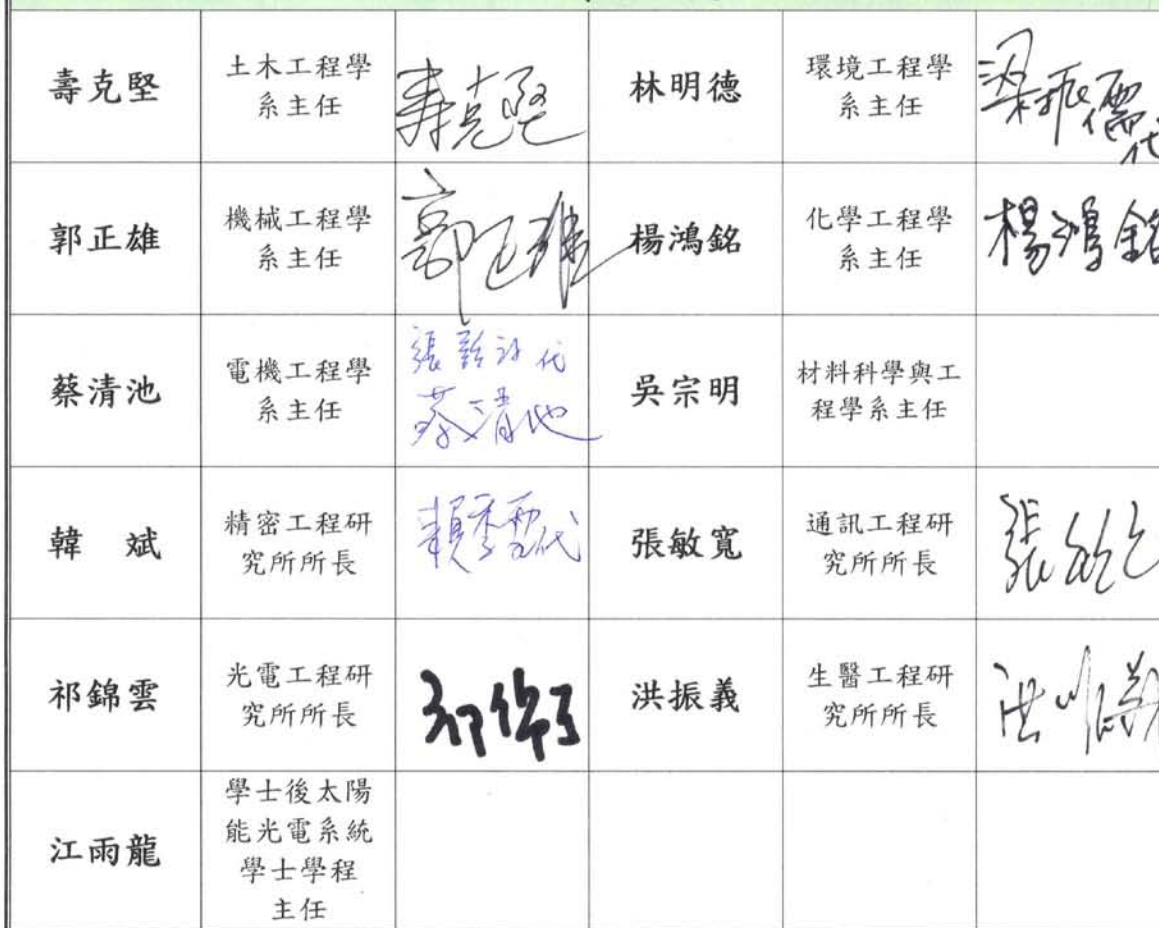 壽克堅
土木工程學
系主任
壽克堅
林明德
環境工程學
系主任
梁振儒代
郭正雄
機械工程學
系主任
郭正雄
楊鴻銘
化學工程學
系主任
楊鴻銘
蔡清池
電機工程學
系主任
蔡清池
吳宗明
材料科學與工
程學系主任
韓 斌
精密工程研
究所所長
張敏寬
通訊工程研
究所所長
祁錦雲
光電工程研
究所所長
洪振義
生醫工程研
究所所長
洪振義
江雨龍
學士後太陽
能光電系統
學士學程
主任